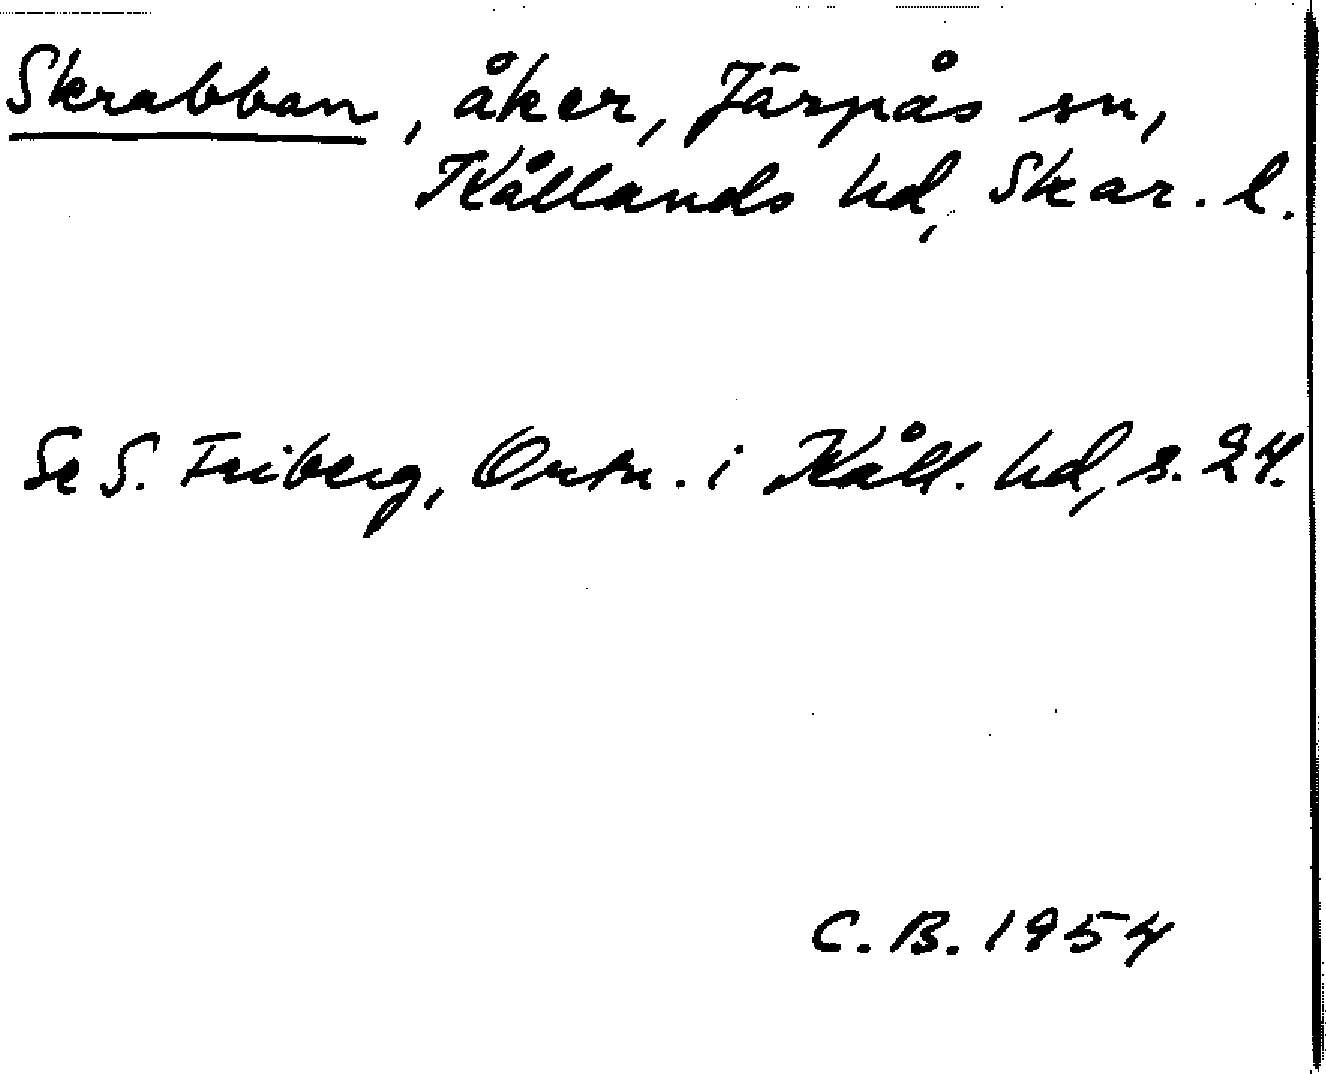 Skrabban, åker, Järpås sn,
Kållands hd, Skar. l.
Se S. Friberg, Ortn. i Kåll. hd, s. 24.
C. B. 1954